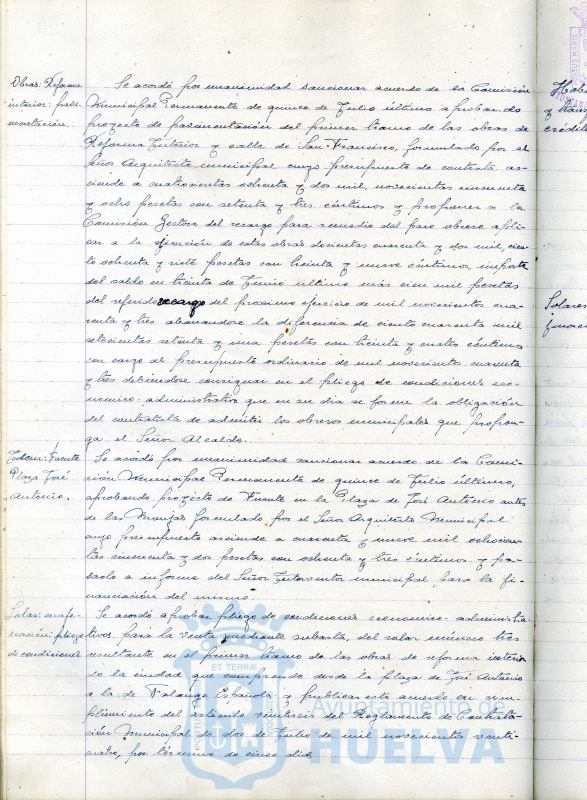 Obras: Reforma
interior: pavi-
mentación.
Se acordó por unanimidad sancionar acuerdo de la Comisión
Municipal Permanente de quince de Julio último aprobando
proyecto de pavimentación del primer tramo de las obras de
Reforma Interior y calle de San Francisco, formulado por el
Señor Arquitecto municipal cuyo presupuesto de contrata as-
ciende a cuatrocientas ochenta y dos mil, novecientas cincuenta
y ocho pesetas con setenta y tres céntimos y proponer a la
Comisión Gestora del recargo para remedio del paro obrero apli-
car a la ejecución de estas obras doscientas cuarenta y dos mil, cien-
to ochenta y siete pesetas con treinta y nueve céntimos, importe
del saldo en treinta de Junio último más cien mil pesetas
del referido recargo del proximo ejercicio de mil novecientos cua-
renta y tres abonandose la diferencia de ciento cuarenta mil
setecientas setenta y una pesetas con treinta y cuatro céntimos
con cargo al presupuesto ordinario de mil novecientos cuarenta
y tres debiendose consignar en el pliego de condiciones eco-
nomico-administrativo que en su dia se forme la obligación
del contratista de admitir los obreros municipales que propon-
ga el Señor Alcalde.
Idem: Fuente
Plaza José
Antonio.
Se acordó por unanimidad sancionar acuerdo de la Comi-
sión Municipal Permanente de quince de Julio último,
aprobando proyecto de Fuente en la Plaza de José Antonio antes
de las Monjas formulado, por el Señor Arquitecto Municipal
cuyo presupuesto asciende a cuarenta y nueve mil ochocien-
tas cincuenta y dos pesetas con ochenta y tres céntimos y pa-
sarlo a informe del Señor Interventor municipal para la fi-
nanciación del mismo.
Solar: enaje-
nación: pliego
de condiciones.
Se acordó aprobar pliego de condiciones economico-administra-
tivas para la venta mediante subasta, del solar número tres
resultante en el primer tramo de las obras de reforma interior
de la ciudad que comprende desde la plaza de José Antonio
a la de Falange Española y publicar este acuerdo en cum-
plimiento del artículo veintiseis del Reglamento de Contrata-
ción Municipal de dos de Julio de mil novecientos veinti-
cuatro, por término de cinco dias
y trans
crédit
Solares
ET TERRÆ
Ayuntamiento de
HUELVA